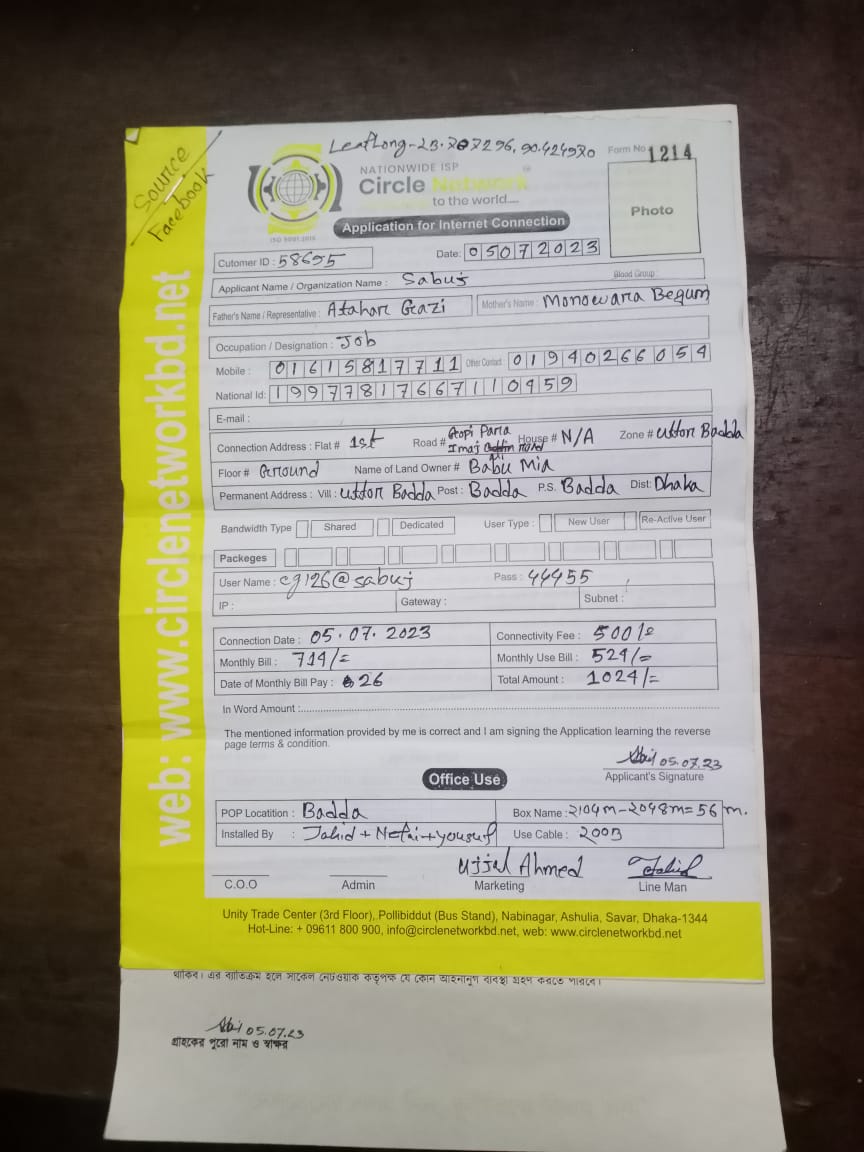 Source
Facebook
Form No 1214
NATIONWIDE ISP
Circle Network
to the world....
ISO 9001:2015
Photo
Application for Internet Connection
Cutomer ID : 58695 Date: 05072023
Blood Group :
Applicant Name / Organization Name : Sabuj
Father's Name / Representative : Atahar Gazi Mother's Name : Monowara Begum
Occupation / Designation : Job
Mobile : 01615817711 Other Contact 01940266054
National Id: 19977817667110459
E-mail :
Connection Address : Flat # 1st Road # Gopi Para House # N/A Zone # Uttor Badda
Floor # Ground Name of Land Owner # Babu Mia
Permanent Address : Vill : Uttor Badda Post : Badda P.S. Badda Dist: Dhaka
Bandwidth Type Shared Dedicated User Type : New User Re-Active User
Packeges
User Name : cg126@sabuj Pass : 44455
IP : Gateway : Subnet :
Connection Date : 05.07.2023 Connectivity Fee : 500/=
Monthly Bill : 714/= Monthly Use Bill : 524/=
Date of Monthly Bill Pay : 26 Total Amount : 1024/=
In Word Amount :
The mentioned information provided by me is correct and I am signing the Application learning the reverse
page terms & condition.
05.07.23
Applicant's Signature
Office Use
POP Locatition : Badda Box Name : 2104m-2048m=56m.
Installed By : Jahid + Netai + yousuf Use Cable : 200B
Ujjal Ahmed Jahid
C.O.O Admin Marketing Line Man
Unity Trade Center (3rd Floor), Pollibiddut (Bus Stand), Nabinagar, Ashulia, Savar, Dhaka-1344
Hot-Line: + 09611 800 900, info@circlenetworkbd.net, web: www.circlenetworkbd.net
web: www.circlenetworkbd.net
থাকিব। এর ব্যতিক্রম হলে সার্কেল নেটওয়ার্ক কতৃপক্ষ যে কোন আইনানুগ ব্যবস্থা গ্রহণ করতে পারবে।
05.07.23
গ্রাহকের পুরো নাম ও স্বাক্ষর